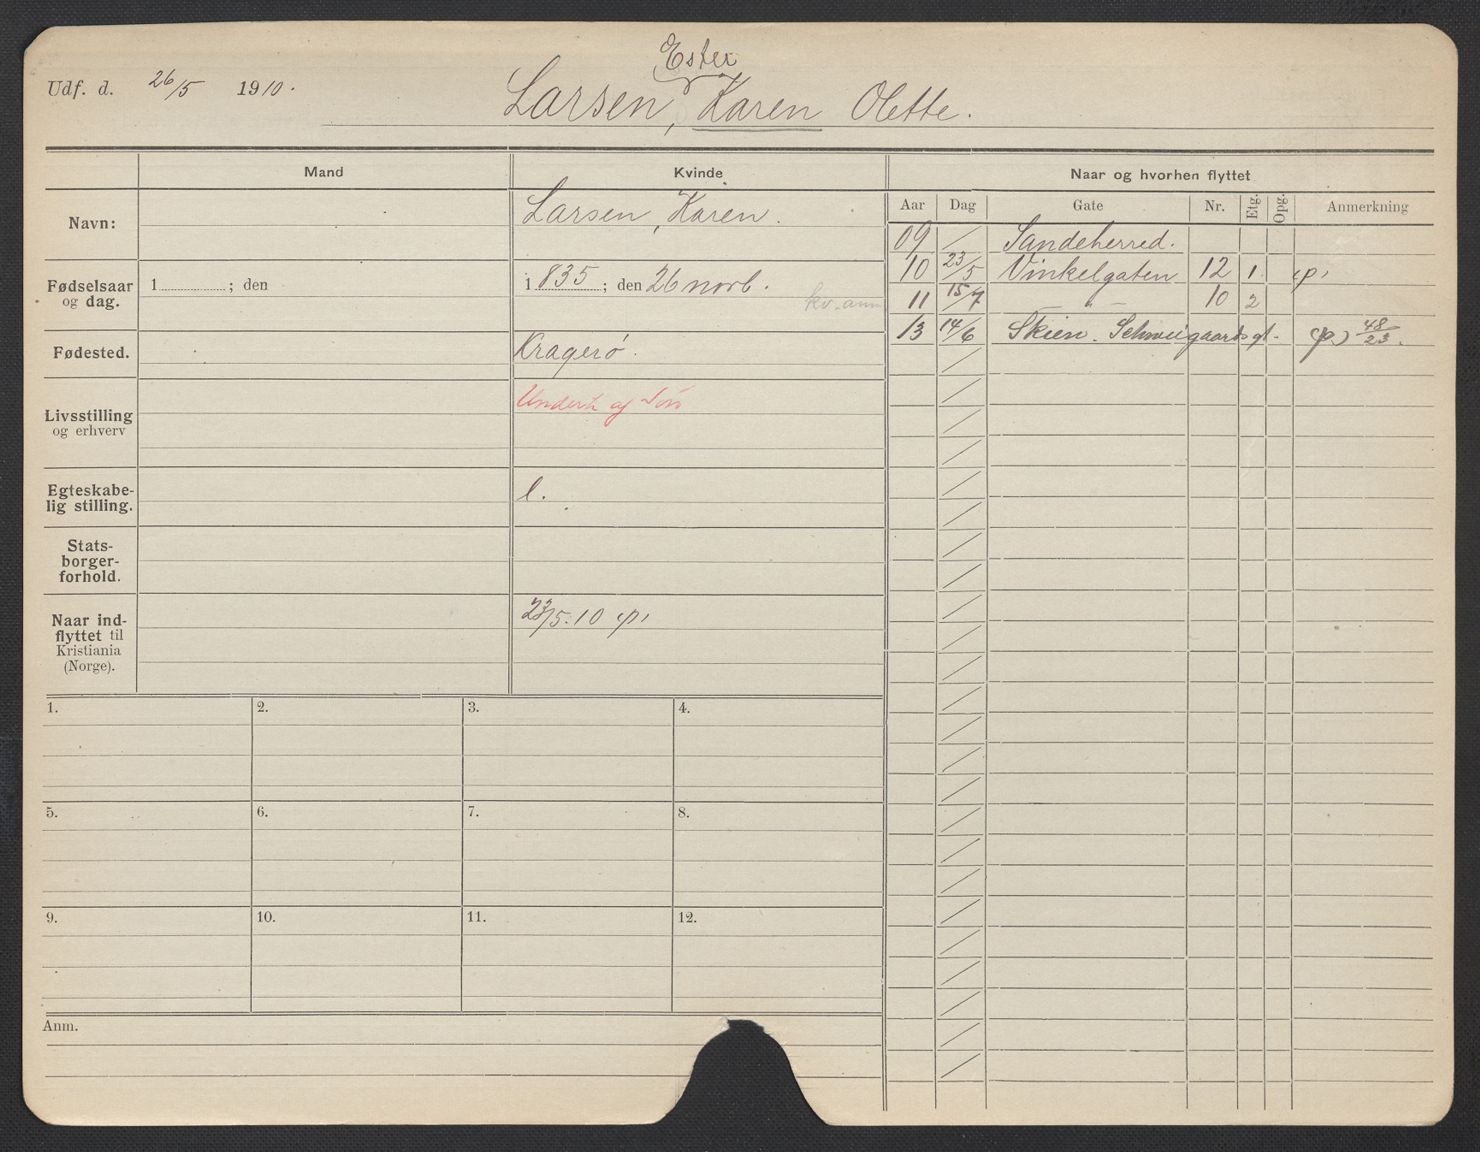 Udf. d. 26/5 1910.
Ester
Larsen, Karen Olette.
Mand
Kvinde
Naar og hvorhen flyttet
Navn:
Larsen, Karen.
Aar Dag Gate Nr. Etg. Opg. Anmerkning
09 / Sandeherred.
10 23/5 Vinkelgaten 12 1. (p)
11 15/7 — " — 10 2
13 14/6 Skien. Schweigaardsgt. (p) 48/23.
Fødselsaar og dag.
1 ; den
i 835 ; den 26 norb.
kv. ann
Fødested.
Kragerø.
Livsstilling og erhverv
Underh af Søn
Egteskabe-
lig stilling.
e.
Stats-
borger-
forhold.
Naar ind-
flyttet til
Kristiania
(Norge).
23/5. 10 (p)
1. 2. 3. 4.
5. 6. 7. 8.
9. 10. 11. 12.
Anm.